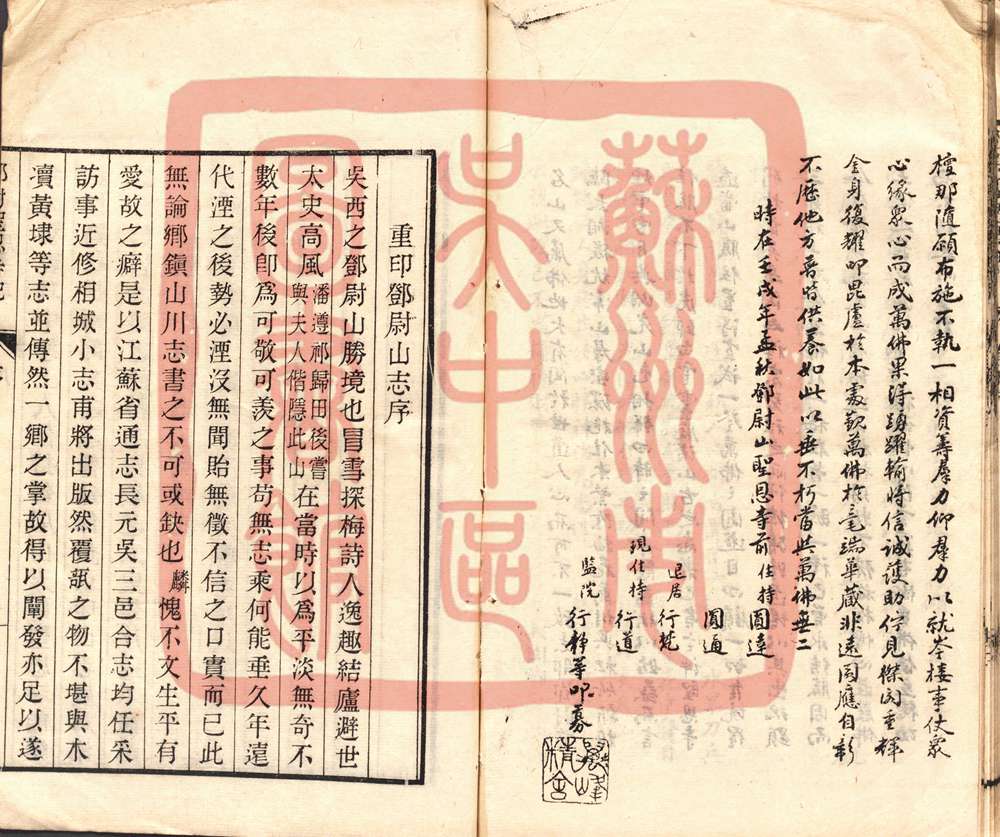 檀那隨願布施不執一相資籌羣力仰羣力以就岑樓事仗衆
心緣衆心而成萬佛果得踴躍輸將信誠護助佇見傑閣重輝
金身復耀叩毘盧於本處觀萬佛於毫端華藏非遠國應自彰
不歷他方普時供養如此以垂不朽當與萬佛無二
時在壬戌年孟秋鄧尉山聖恩寺前住持圓達
圓通
退居行梵
現住持行道
監院行靜等叩募
精舍
重印鄧尉山志序
吳西之鄧尉山勝境也冒雪探梅詩人逸趣結廬避世
太史高風潘遵祁歸田後嘗與夫人偕隱此山在當時以爲平淡無奇不
數年後卽爲可敬可羨之事苟無志乘何能垂久年遠
代湮之後勢必湮沒無聞貽無徵不信之口實而已此
無論鄉鎭山川志書之不可或缺也麟愧不文生平有
愛故之癖是以江蘇省通志長元吳三邑合志均任采
訪事近修相城小志甫將出版然覆瓿之物不堪與木
瀆黃埭等志並傳然一鄉之掌故得以闡發亦足以遂
蘇州市
吳中區
圖書館